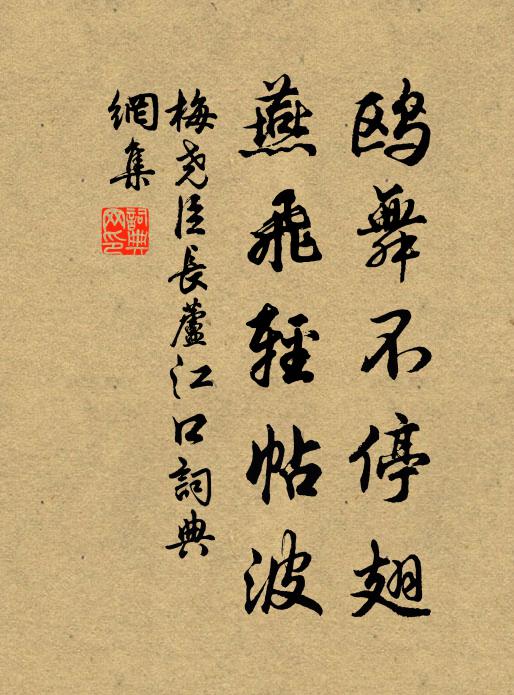 鸥舞不停翅
燕飛輕帖波
梅堯臣長蘆江口詞典
網集
詞典
网印